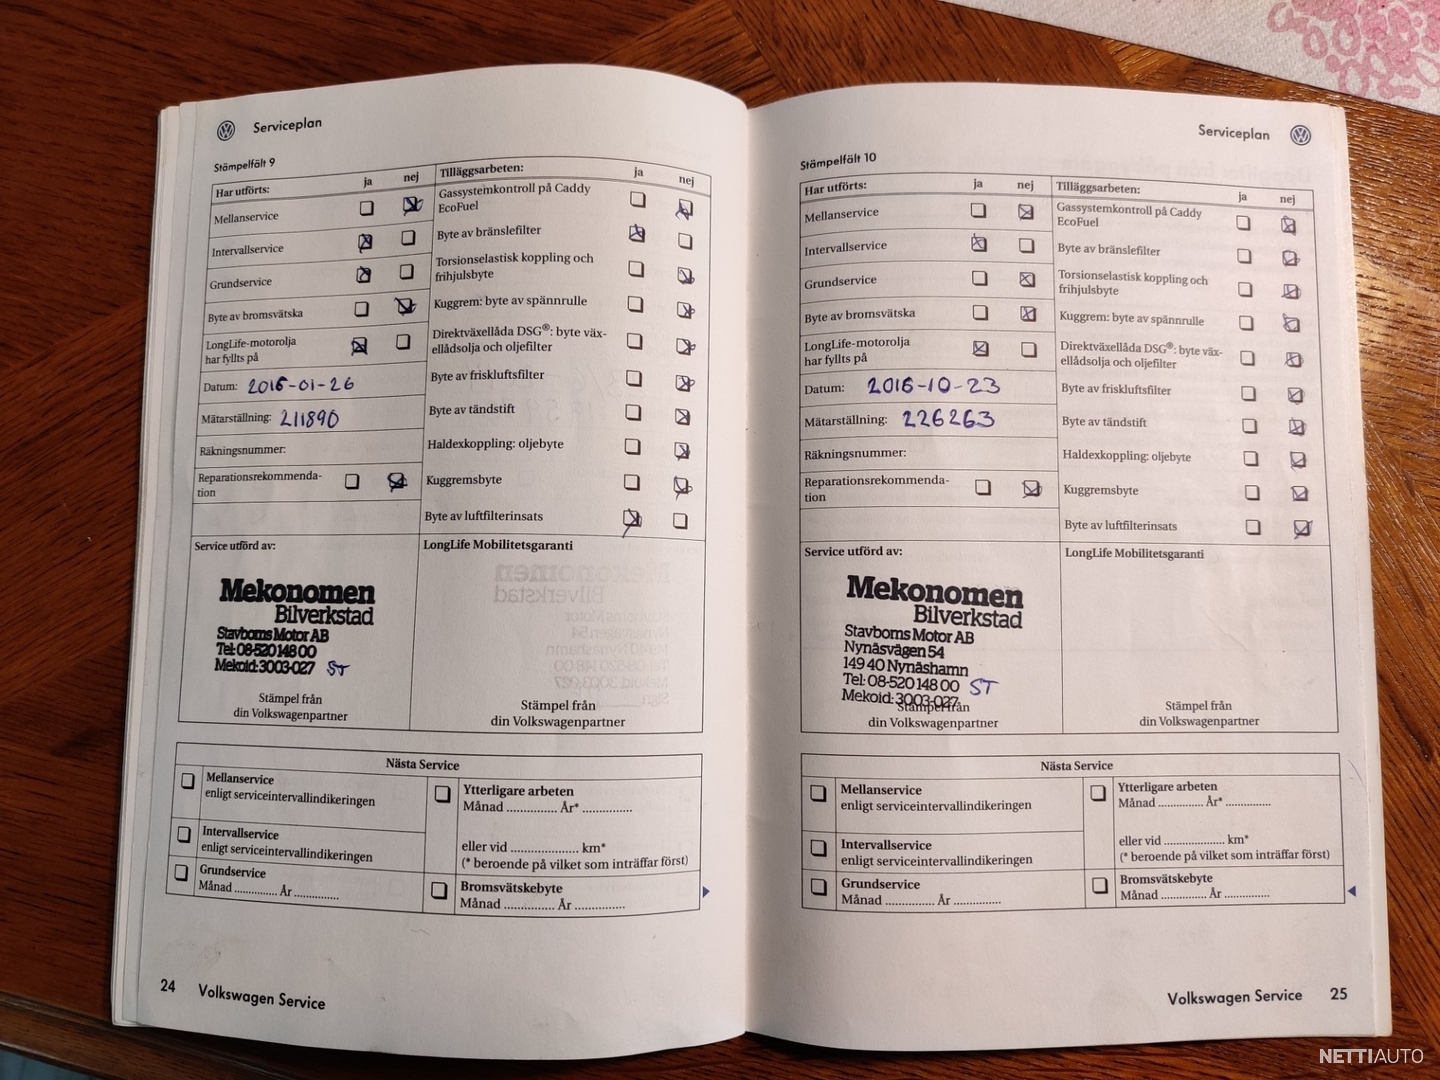 Serviceplan
Stämpelfält 9
Har utförts: ja nej
Mellanservice
Intervallservice
Grundservice
Byte av bromsvätska
LongLife-motorolja
har fyllts på
Datum: 2016-01-26
Mätarställning: 211890
Räkningsnummer:
Reparationsrekommenda-
tion
Tilläggsarbeten: ja nej
Gassystemkontroll på Caddy
EcoFuel
Byte av bränslefilter
Torsionselastisk koppling och
frihjulsbyte
Kuggrem: byte av spännrulle
Direktväxellåda DSG®: byte väx-
ellådsolja och oljefilter
Byte av friskluftsfilter
Byte av tändstift
Haldexkoppling: oljebyte
Kuggremsbyte
Byte av luftfilterinsats
Service utförd av:
Mekonomen
Bilverkstad
Stavborns Motor AB
Tel: 08-520 148 00
Mekoid: 3003-027 ST
Stämpel från
din Volkswagenpartner
LongLife Mobilitetsgaranti
Stämpel från
din Volkswagenpartner
Nästa Service
Mellanservice
enligt serviceintervallindikeringen
Intervallservice
enligt serviceintervallindikeringen
Grundservice
Månad .............. År ..............
Ytterligare arbeten
Månad .............. År* ..............
eller vid .................... km*
(* beroende på vilket som inträffar först)
Bromsvätskebyte
Månad .............. År ..............
24 Volkswagen Service
Serviceplan
Stämpelfält 10
Har utförts: ja nej
Mellanservice
Intervallservice
Grundservice
Byte av bromsvätska
LongLife-motorolja
har fyllts på
Datum: 2016-10-23
Mätarställning: 226263
Räkningsnummer:
Reparationsrekommenda-
tion
Tilläggsarbeten: ja nej
Gassystemkontroll på Caddy
EcoFuel
Byte av bränslefilter
Torsionselastisk koppling och
frihjulsbyte
Kuggrem: byte av spännrulle
Direktväxellåda DSG®: byte väx-
ellådsolja och oljefilter
Byte av friskluftsfilter
Byte av tändstift
Haldexkoppling: oljebyte
Kuggremsbyte
Byte av luftfilterinsats
Service utförd av:
Mekonomen
Bilverkstad
Stavborns Motor AB
Nynäsvägen 54
149 40 Nynäshamn
Tel: 08-520 148 00 ST
Mekoid: 3003-027
Stämpel från
din Volkswagenpartner
LongLife Mobilitetsgaranti
Stämpel från
din Volkswagenpartner
Nästa Service
Mellanservice
enligt serviceintervallindikeringen
Intervallservice
enligt serviceintervallindikeringen
Grundservice
Månad .............. År ..............
Ytterligare arbeten
Månad .............. År* ..............
eller vid .................... km*
(* beroende på vilket som inträffar först)
Bromsvätskebyte
Månad .............. År ..............
Volkswagen Service 25
NETTIAUTO